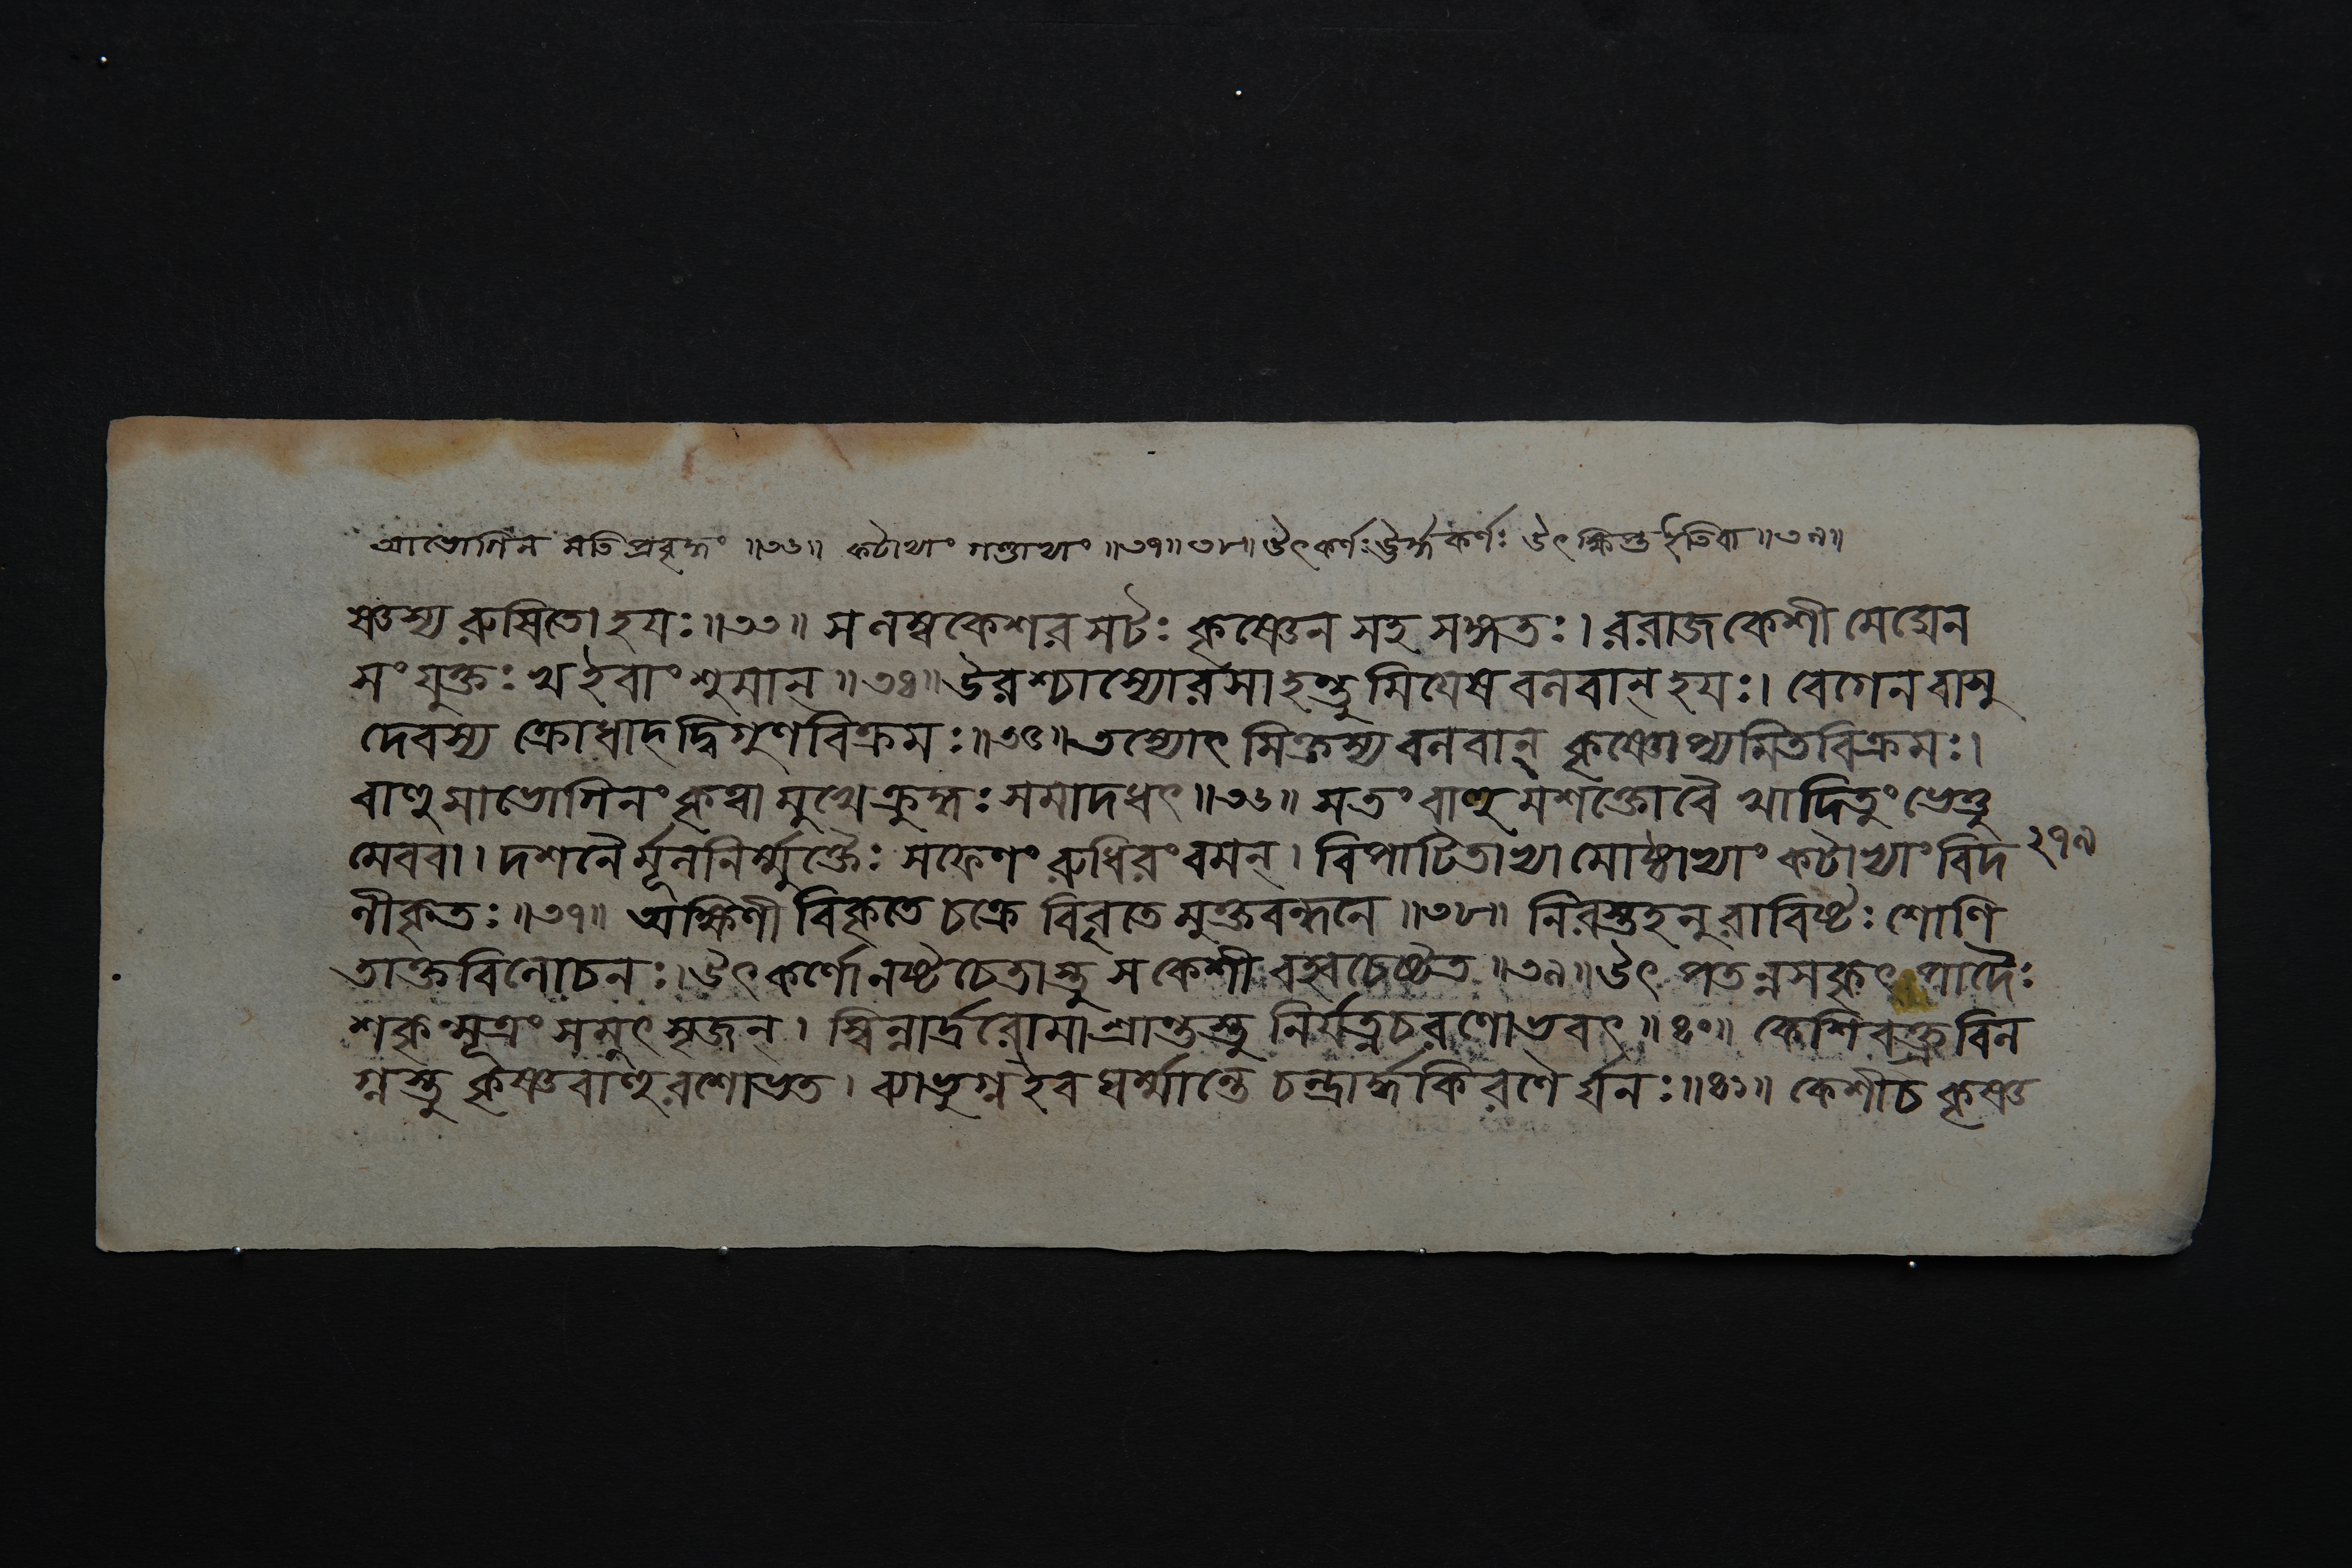 আভোগিনমতিপ্রবৃদ্ধং ॥৩৬॥ কটাভ্যাং গণ্ডাভ্যাং ॥৩৭॥৩৮॥ উৎকর্ণঃ ঊর্দ্ধকর্ণঃ উৎক্ষিপ্ত ইতিবা ॥৩৯॥
ষ্ণস্য রুষিতো হয়ঃ ॥৩৩॥ স লম্বকেশরসটঃ কৃষ্ণেন সহ সঙ্গতঃ । ররাজ কেশী মেঘেন
সংযুক্তঃ খ ইবাংশুমান্ ॥৩৪॥ উরশ্চাস্যোরসা হন্তুমিয়েষ বলবান্ হয়ঃ । বেগেন বাসু
দেবস্য ক্রোধাদ্দ্বিগুণবিক্রমঃ ॥৩৫॥ তস্যোৎসিক্তস্য বলবান্ কৃষ্ণোপ্যমিতবিক্রমঃ ।
বাহুমাভোগিনং কৃত্বা মুখে ক্রুদ্ধঃ সমাদধৎ ॥৩৬॥ স তং বাহুমশক্তো বৈ খাদিতুং ভেত্তু
মেববা । দশনৈর্মূলনির্ম্মুক্তৈঃ সফেণং রুধিরং বমন্ । বিপাটিতাভ্যামোষ্ঠাভ্যাং কটাভ্যাং বিদ ২৭৯
লীকৃতঃ ॥৩৭॥ অক্ষিণী বিকৃতে চক্রে বিবৃতে মুক্তবন্ধনে ॥৩৮॥ নিরস্তহনুরাবিষ্টঃ শোণি
তাক্তবিলোচনঃ । উৎকর্ণো নষ্টচেতাস্তু স কেশী বহ্বচেষ্টত ॥৩৯॥ উৎপতন্নসকৃৎ পাদৈঃ
শকৃন্মূত্রং সমুৎসৃজন্ । স্বিন্নার্দ্ররোমা শ্রান্তস্তু নির্যত্নচরণোভবৎ ॥৪০॥ কেশিবক্ত্রবিল
গ্নস্তু কৃষ্ণবাহুরশোভত । ব্যাভুগ্ন ইব ঘর্ম্মান্তে চন্দ্রার্দ্ধকিরণৈর্ঘনঃ ॥৪১॥ কেশীচ কৃষ্ণ